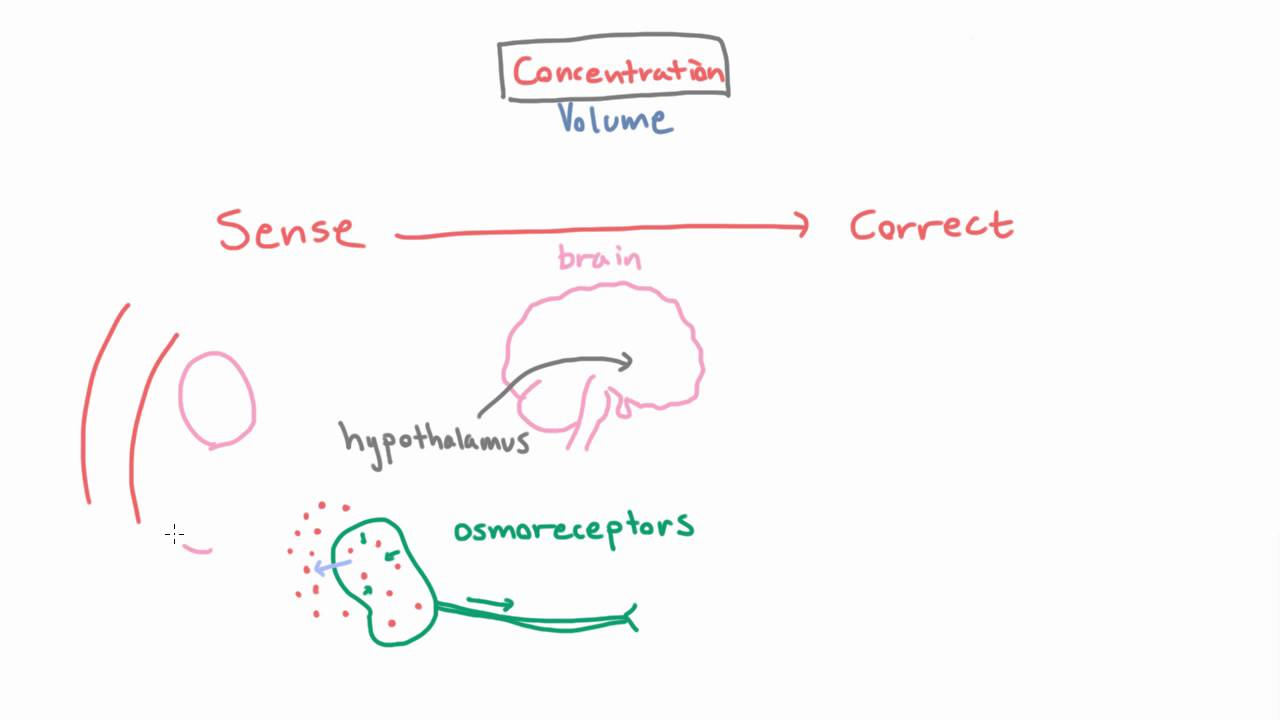 Concentration
Volume
Sense
Correct
brain
hypothalamus
osmoreceptors